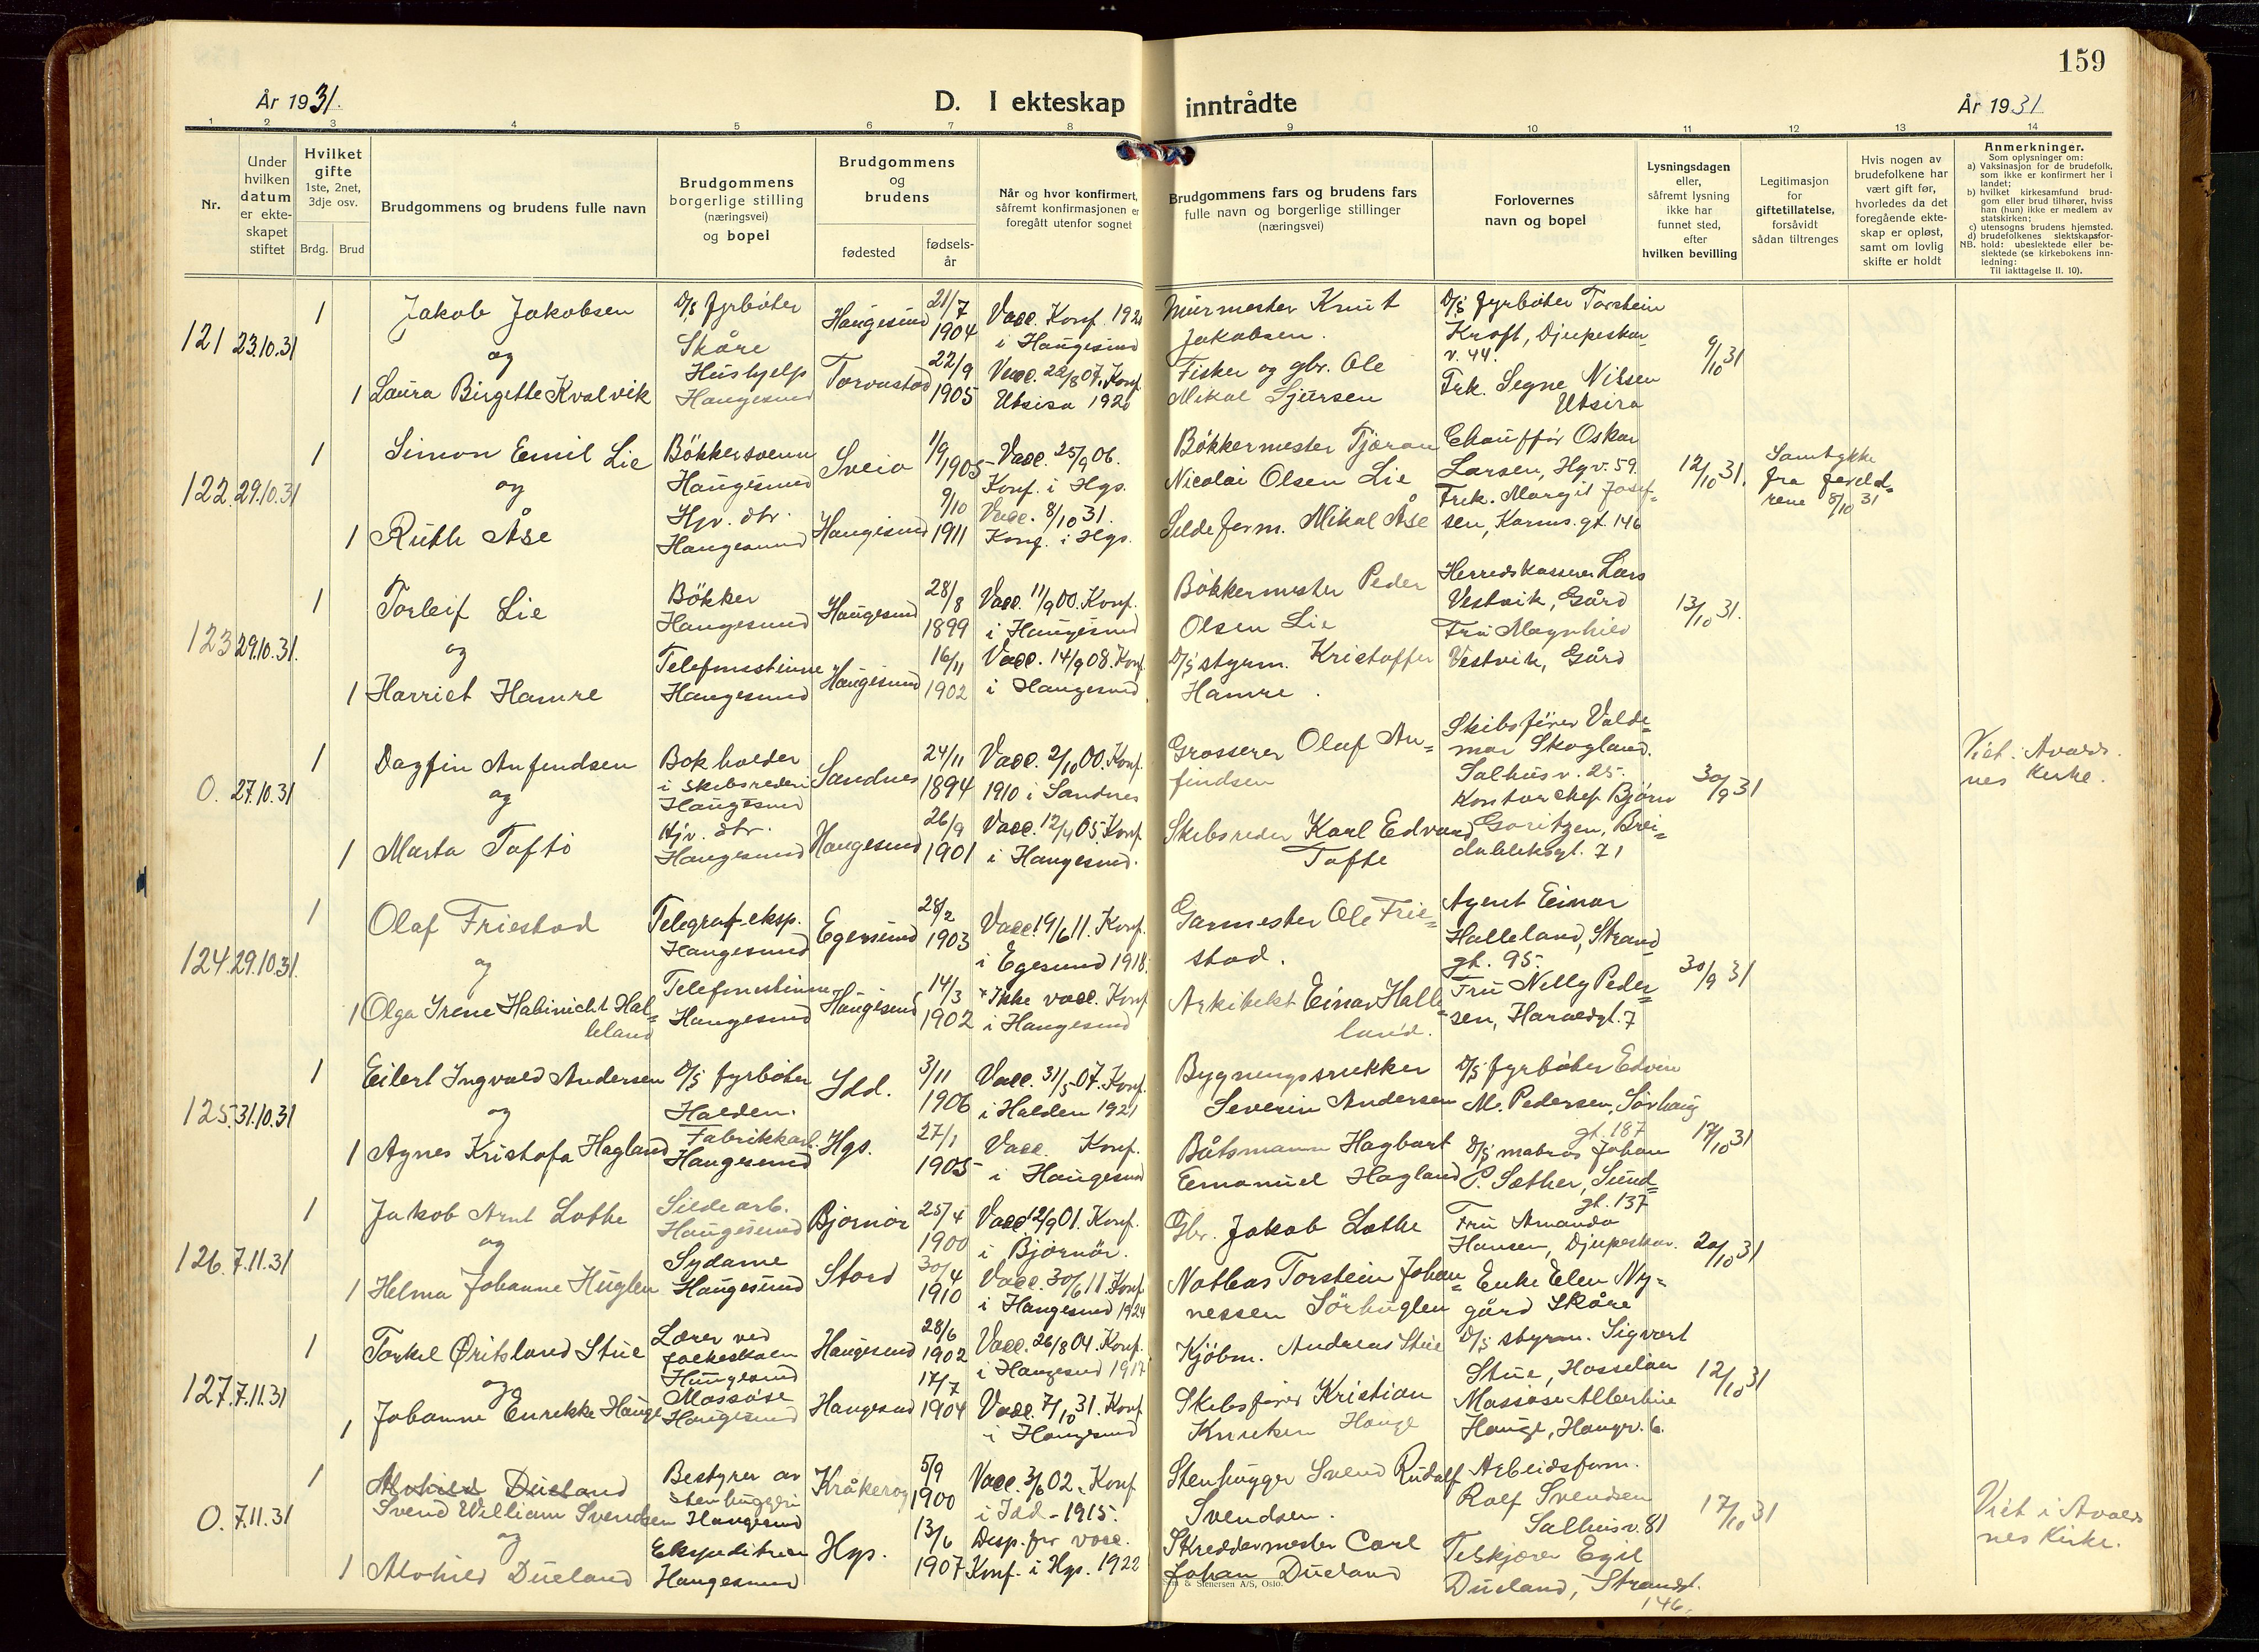 159
År 1931.
D. I ekteskap inntrådte
År 1931
1 2 3 4 5 6 7 8 9 10 11 12 13 14
Nr.
Under hvilken datum er ekteskapet stiftet
Hvilket gifte 1ste, 2net, 3dje osv.
Brdg. Brud
Brudgommens og brudens fulle navn
Brudgommens borgerlige stilling (næringsvei) og bopel
Brudgommens og brudens
fødested
fødsels-år
Når og hvor konfirmert, såfremt konfirmasjonen er foregått utenfor sognet
Brudgommens fars og brudens fars fulle navn og borgerlige stillinger (næringsvei)
Forlovernes navn og bopel
Lysningsdagen eller, såfremt lysning ikke har funnet sted, efter hvilken bevilling
Legitimasjon for giftetillatelse, forsåvidt sådan tiltrenges
Hvis nogen av brudefolkene har vært gift før, hvorledes da det foregående ekteskap er opløst, samt om lovlig skifte er holdt
Anmerkninger.
Som oplysninger om:
a) Vaksinasjon for de brudefolk, som ikke er konfirmert her i landet;
b) hvilket kirkesamfund brudgom eller brud tilhører, hviss han (hun) ikke er medlem av statskirken;
c) utensogns brudens hjemsted.
d) brudefolkenes slektskapsforhold: ubeslektede eller beslektede (se kirkebokens innledning:
NB.
Til iakttagelse II. 10).
121 23.10.31
1 Jakob Jakobsen
D/s fyrbøter
Skåre
Haugesund 21/7 1904
Vacc. Konf. 192
i Haugesund
Murmester Knut
Jakobsen.
D/s fyrbøter Torstein
Kroft, Djupeskar
v. 44.
9/10 31
og
1 Laura Birgitte Kvalvik
Hushjelp
Haugesund
Torvastad 22/9 1905
Vacc. 22/8 07. Konf.
Utsira 1920
Fisker og gbr. Ole
Mikal Sjursen
Frk. Segne Nilsen
Utsira
122. 29.10.31
1 Simon Emil Lie
Bökkersvenn
Haugesund
Sveio 1/9 1905
Vacc. 25/9 06.
Konf. i Hgs.
Bökkermester Tjeran
Nicolai Olsen Lie
Chauffør Oskar
Larsen, Hgv. 59.
12/10 31.
Samtykke
fra foreld-
rene 8/10 31
og
1 Ruth Åse
Hjv. dtr.
Haugesund
Haugesund 9/10 1911
Vacc. 8/10 31.
Konf. i Hgs.
Sildeform. Mikal Åse
Frk. Margit Josef-
sen, Karms.gt. 146
123 29.10.31.
1 Torleif Lie
Bökker
Haugesund
Haugesund 28/8 1899
Vacc. 11/9 00. Konf.
i Haugesund
Bökkermester Peder
Olsen Lie
Herredskasserer Lars
Vestvik, Gård
13/10 31.
og
1 Harriet Hamre
Telefonistinne
Haugesund
Haugesund 16/11 1902
Vacc. 14/9 08. Konf.
i Haugesund
D/s styrm. Kristoffer
Hamre.
Fru Magnhild
Vestvik, Gård
0. 27.10.31
1 Dagfin Anfindsen
Bokholder
i skibsrederi
Haugesund
Sandnes 24/11 1894
Vacc. 2/10 00. Konf.
1910 i Sandnes
Grosserer Olaf An-
findsen
Skibsfører Valde-
mar Skogland.
Salhusv. 25.
30/9 31
Viet i Avalds-
nes Kirke.
og
1 Marta Taftö
Hjv. dtr.
Haugesund
Haugesund 26/9 1901
Vacc. 12/4 05. Konf.
i Haugesund.
Skibsreder Karl Edvard
Tofte
Kontorchef Bjørn
Goritzen, Brei-
dablikgt. 71
124 29.10.31.
1 Olaf Friestad
Telegraf-eksp.
Haugesund
Egersund 28/2 1903
Vacc. 19/6 11. Konf.
i Egesund 1918.
Garmester Ole Frie-
stad.
Agent Einar
Halleland, Strand-
gt. 95.
30/9 31
og
1 Olga Irene Habinicht Hal-
leland
Telefonistinne
Haugesund
Haugesund 14/3 1902
Ikke vacc. Konf
i Haugesund
Arkitekt Einar Halle-
land.
Fru Nelly Peder-
sen, Haraldgt. 7
125. 31.10.31
1 Eilert Ingvald Andersen
D/s fyrbøter
Halden.
Idd. 3/11 1906
Vacc. 31/5 07. Konf.
i Halden 1921
Bygningssnekker
Severin Andersen
D/s fyrbøter Edvin
M. Pedersen, Sørhaug
gt. 187
17/10 31
og
1 Agnes Kristofa Hagland
Fabrikkarb.
Haugesund
Hgs. 27/1 1905
Vacc. Konf.
i Haugesund
Båtsmann Hagbart
Emanuel Hagland
D/s matros Johan
P. Sæther, Sund-
gt. 137
126. 7.11.31
1 Jakob Arnt Lothe
Sildearb.
Haugesund
Bjørnör 25/4 1900
Vacc 12/9 01. Konf.
i Bjørnör.
Gbr. Jakob Lothe
Fru Amanda
Hansen, Djupeskar.
20/10 31
og
1 Helma Johanne Huglen
Sydame
Haugesund
Stord 30/4 1910
Vacc. 30/6 11. Konf.
i Haugesund 1924
Notbas Torstein Johan-
nessen Sörhuglen
Enke Elen Ny-
gård Skåre
127. 7.11.31
1 Torkel Øritsland Stue
Lærer ved
folkeskolen
Haugesund
Haugesund 28/6 1902
Vacc. 26/8 04. Konf.
i Haugesund 1917
Kjöbm. Andreas Stue
D/s styrm. Sigvart
Stue, Hasseløen
12/10 31
og
1 Johanne Enrikke Hauge
Massøse
Haugesund
Haugesund 17/7 1904
Vacc. 7/10 31. Konf.
i Haugesund
Skibsfører Kristian
Knutsen Hauge
Massøse Albertine
Hauge, Haugv. 6.
0. 7.11.31
1 Alvhild Dueland
Svend William Svendsen
Bestyrer av
stenhuggeri
Haugesund
Kråkerøy 5/9 1900
Vacc. 3/6 02. Konf
i Idd - 1915.
Stenhugger Svend Rudolf
Svendsen.
Arbeidsform.
Rolf Svendsen
Salhusv. 81
17/10 31
Viet i Avalds
nes Kirke.
og
1 Alvhild Dueland
Ekspeditrise
Haugesund
Hgs. 13/6 1907
Disp. for vacc.
Konf. i Hgs. 1922
Skreddermester Carl
Johan Dueland
Tilskjærer Egil
Dueland, Strandgt.
146.
& Stenersen A/S, Oslo.